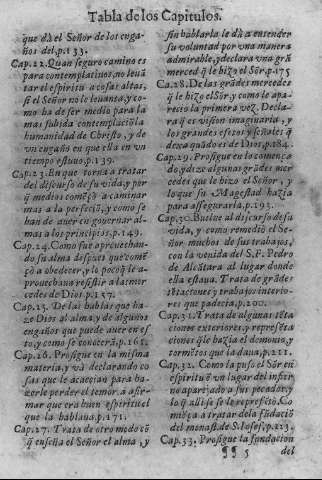 Tabla de los Capitulos.
que dà el Señor de los enga-
ños del.p.133.
Cap.22. Quan seguro camino es
para contemplatiuos, no leuã
tar el espiritu a cosas altas,
si el Señor no le leuanta, y co-
mo ha de ser medio para la
mas subida contemplaciõ la
humanidad de Christo, y de
vn engaño en que ella en vn
tiempo estuuo, p.139.
Cap.23. En que torna a tratar
del discurso de su vida, y por
q̃ medios começò a caminar
mas a la perfeciõ, y como se
han de auer en gouernar al-
mas a los principios, p.149.
Cap.24. Como fue aprouechan-
do su alma despues que comẽ-
çò a obedecer, y lo pocoq̃ le a-
prouechaua resistir a las mer
cedes de Dios. p.157.
Cap.25. De las hablas que ha-
ze Dios al alma, y de algunos
engaños que puede auer en es
to, y como se conocerà, p.161.
Cap.26. Prosigue en la misma
materia, y và declarando co
sas que le acaecian para ha-
zerle perder el temor, a afir-
mar que era buen espiritu el
que la hablaua. p.171.
Cap.27. Trata de otro modo cõ
q̃ enseña el Señor el alma, y
sin hablarla le dà a entender
su voluntad por vna manera
admirable, y declara vna grã
merced q̃ le hizo el Sõr, p.175
Ca.28. De las grãdes mercedes
q̃ le hizo el Sõr, y como le apa-
recio la primera vez. Decla-
ra q̃ es visiõn imaginaria, y
los grandes efetos y señales q̃
dexa quãdo es de Dios, p.184.
Cap.29. Prosigue en lo començ a
do, y dize algunas grãdes mer
cedes que le hizo el Señor, y
lo que su Magestad hazia
para assegurarla, p.193.
Cap.30. Buelue al discurso de su
vida, y como remediò el Se-
ñor muchos de sus trabajos,
con la venida del S.F. Pedro
de Alcãtara al lugar donde
ella estaua. Trata de grãdes
tẽtaciones y trabajos interio-
res que padecia, p.200.
Cap.31. Trata de algunas tẽta
ciones exteriores, y represẽta
ciõnes q̃ le hazia el demonio, y
tormẽtos que la daua, p.211.
Cap.32. Como la puso el Sõr en
espiritu ẽ vn lugar del infier
no aparejado a sus pecados, y
lo q̃ alli se le represẽtò. Co
miẽça a tratar de la fũdaciõ
del monast. de S. Iosef, p.223.
Cap.33. Prosigue la fundacion
¶¶ 5
del